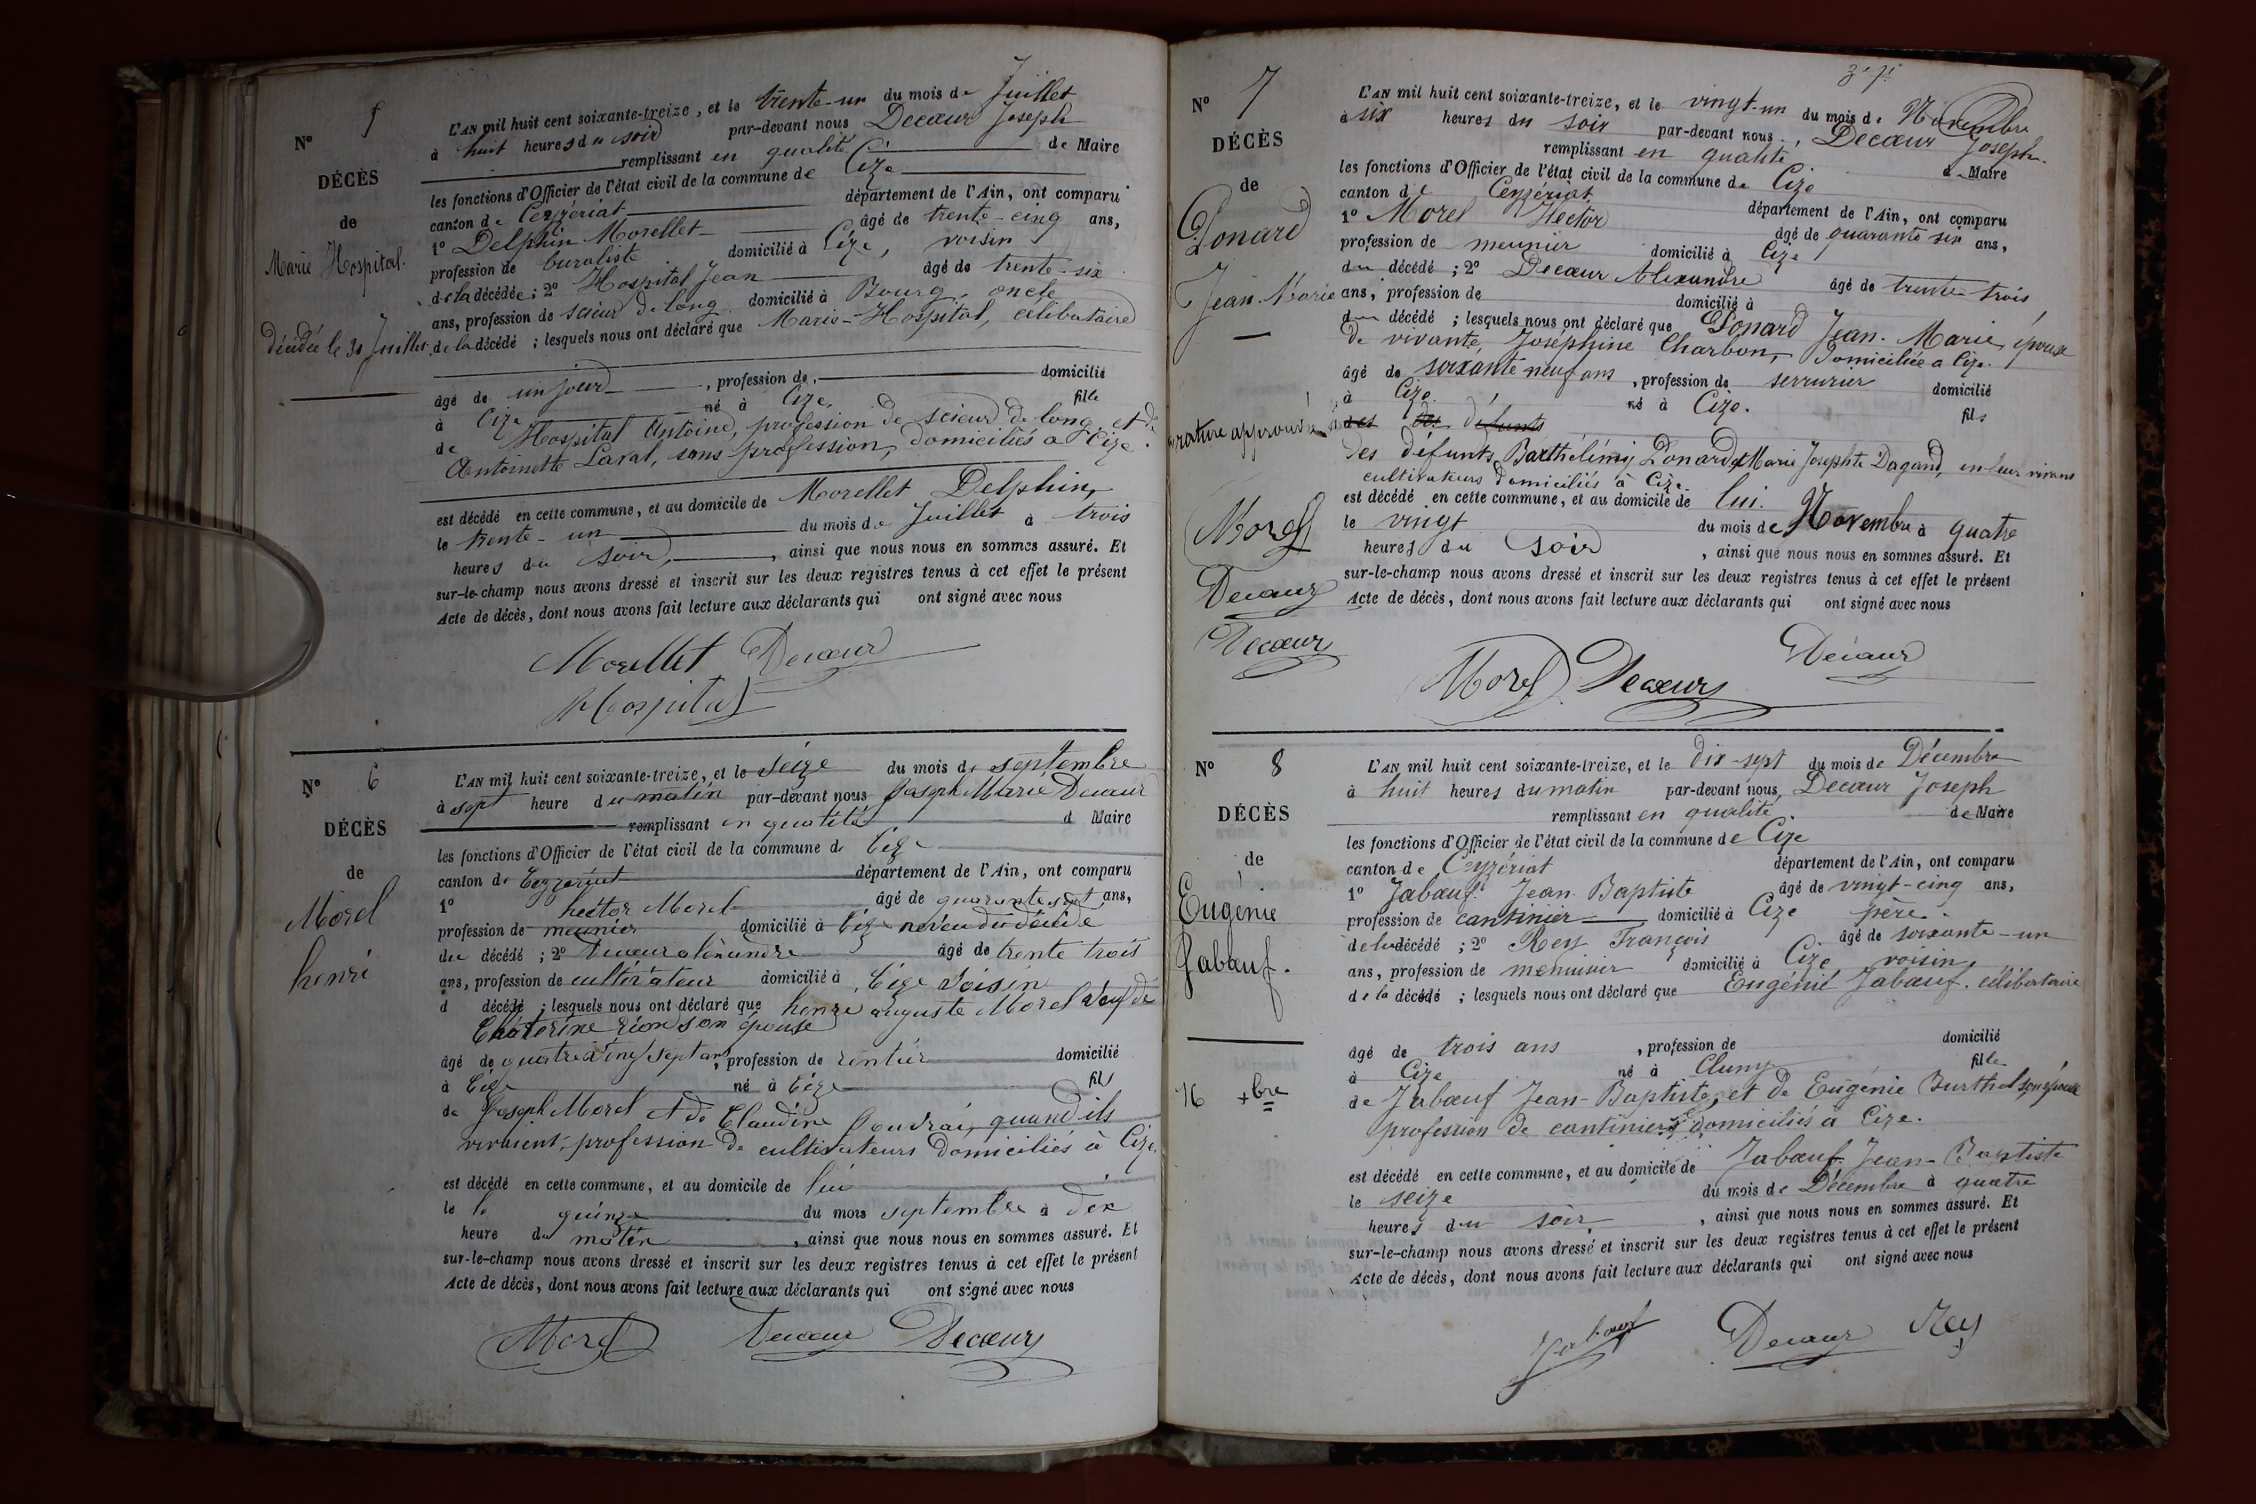 N° 5
DÉCÈS
de
Marie Hospital.
décédée le 31 Juillet.
L'AN mil huit cent soixante-treize, et le trente-un du mois de Juillet
à huit heures du soir par-devant nous Decœur Joseph
remplissant en qualité de Maire
les fonctions d'Officier de l'état civil de la commune de Cize
canton de Ceyzériat département de l'Ain, ont comparu
1° Delphin Morellet âgé de trente-cinq ans,
profession de buraliste domicilié à Cize, voisin
de la décédée; 2° Hospital Jean âgé de trente-six
ans, profession de scieur de long domicilié à Bourg, oncle
de la décédé; lesquels nous ont déclaré que Marie-Hospital, célibataire
âgé de un jour, profession de, domicilié
à Cize né à Cize, fille
de Hospital Antoine, profession de scieur de long, et d'
Antoinette Laval, sans profession, domiciliés à Cize.
est décédé en cette commune, et au domicile de Morellet Delphin,
le trente-un du mois de Juillet à trois
heures du soir, ainsi que nous nous en sommes assuré. Et
sur-le-champ nous avons dressé et inscrit sur les deux registres tenus à cet effet le présent
Acte de décès, dont nous avons fait lecture aux déclarants qui ont signé avec nous
Morellet Decœur
Hospital
N° 6
DÉCÈS
de
Morel
henri
L'AN mil huit cent soixante-treize, et le seize du mois de septembre
à sept heure du matin par-devant nous Joseph Marie Decœur
remplissant en qualité d Maire
les fonctions d'Officier de l'état civil de la commune d Cize
canton de Ceyzeriat département de l'Ain, ont comparu
1° hector Morel âgé de quarante sept ans,
profession de meunier domicilié à Cize neveu du décédé
du décédé; 2° Decœur alexandre âgé de trente trois
ans, profession de cultivateur domicilié à Cize voisin
d décédé; lesquels nous ont déclaré que henri auguste Morel veuf de
Chaterine son épouse
âgé de quatre vingt sept ans, profession de rentier domicilié
à Cize né à Cize fils
de Joseph Morel et de Claudine quand ils
vivaient, profession de cultivateurs domiciliés à Cize,
est décédé en cette commune, et au domicile de lui
le le quinze du mois septembre à dix
heure du matin, ainsi que nous nous en sommes assuré. Et
sur-le-champ nous avons dressé et inscrit sur les deux registres tenus à cet effet le présent
Acte de décès, dont nous avons fait lecture aux déclarants qui ont signé avec nous
Morel Decœur Decœur
N° 7
DÉCÈS
de
Ponard
Jean-Marie
rature approuvée
Morel
Decœur
Decœur
L'AN mil huit cent soixante-treize, et le vingt-un du mois de Novembre
à six heures du soir par-devant nous, Decœur Joseph
remplissant en qualité d Maire
les fonctions d'Officier de l'état civil de la commune de Cize
canton de Ceyzériat département de l'Ain, ont comparu
1° Morel Hector âgé de quarante six ans,
profession de meunier domicilié à Cize
du décédé; 2° Decœur Alexandre âgé de trente-trois
ans, profession de domicilié à
du décédé; lesquels nous ont déclaré que Ponard Jean-Marie, époux
de vivante, Joséphine Charbon, Domiciliée à Cize.
âgé de soixante neuf ans, profession de serrurier domicilié
à Cize. né à Cize. fils
des des défunts
des défunts Barthélémy Ponard et Marie Josephte Dagand, en leur vivant
cultivateurs domiciliés à Cize.
est décédé en cette commune, et au domicile de lui.
le vingt du mois de Novembre à quatre
heures du soir, ainsi que nous nous en sommes assuré. Et
sur-le-champ nous avons dressé et inscrit sur les deux registres tenus à cet effet le présent
Acte de décès, dont nous avons fait lecture aux déclarants qui ont signé avec nous
Morel Decœur Decœur
N° 8
DÉCÈS
de
Eugénie
Jabœuf.
16 xbre
L'AN mil huit cent soixante-treize, et le dix-sept du mois de Décembre
à huit heures du matin par-devant nous, Decœur Joseph
remplissant en qualité de Maire
les fonctions d'Officier de l'état civil de la commune de Cize
canton de Ceyzériat département de l'Ain, ont comparu
1° Jabœuf Jean-Baptiste âgé de vingt-cinq ans,
profession de cantinier domicilié à Cize père.
de la décédé; 2° Rey François âgé de soixante-un
ans, profession de menuisier domicilié à Cize voisin,
de la décédé; lesquels nous ont déclaré que Eugénie Jabœuf. célibataire
âgé de trois ans, profession de domicilié
à Cize né à Cluny fille
de Jabœuf Jean-Baptiste, et de Eugénie Burthel son épouse
profession de cantiniers domiciliés à Cize.
est décédé en cette commune, et au domicile de Jabœuf Jean-Baptiste
le seize du mois de Décembre à quatre
heures du soir, ainsi que nous nous en sommes assuré. Et
sur-le-champ nous avons dressé et inscrit sur les deux registres tenus à cet effet le présent
Acte de décès, dont nous avons fait lecture aux déclarants qui ont signé avec nous
Jabœuf Decœur Rey